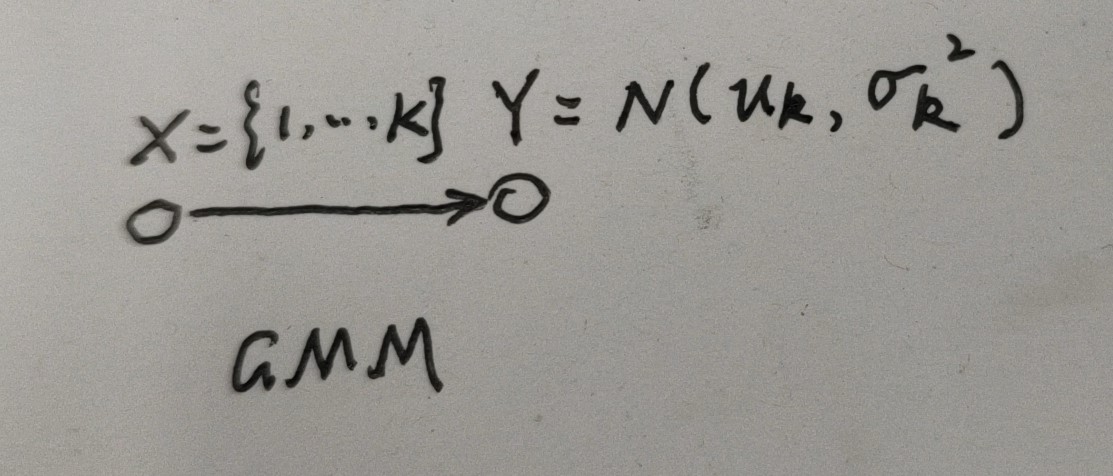 X={1,...K} Y=N(uₖ, σₖ²)
GMM